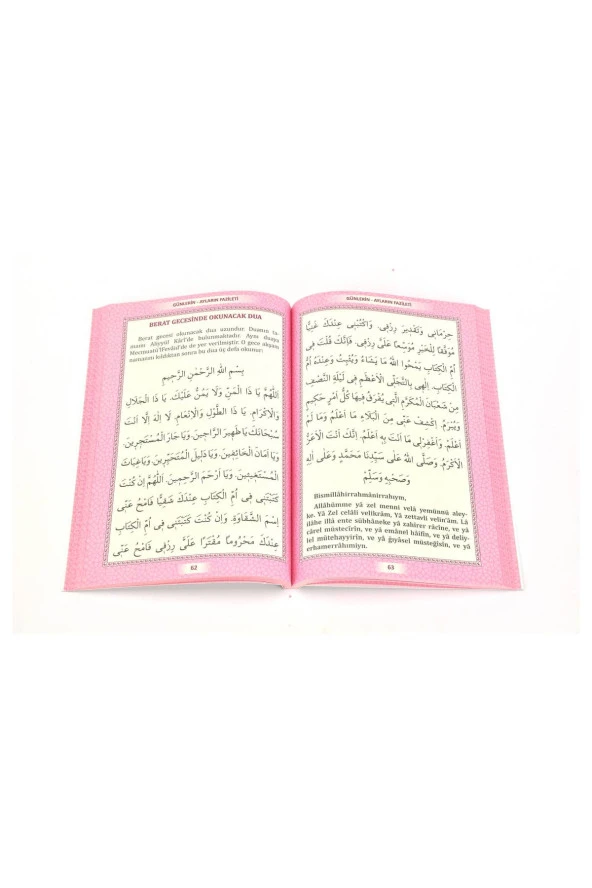 GÜNLERİN - AYLARIN FAZİLETİ
BERAT GECESİNDE OKUNACAK DUA
Berat gecesi okunacak dua uzundur. Duanın ta-
mamı Aliyyül Kârî'de bulunmaktadır. Aynı duaya
Mecmuatü'l Fevâid'de de yer verilmiştir. O gece akşam
namazını kıldıktan sonra bu dua üç defa okunur:
بِسْمِ اللّٰهِ الرَّحْمٰنِ الرَّحِيمِ
اَللّٰهُمَّ يَا ذَا الْمَنِّ وَلَا يَمُنُّ عَلَيْكَ. يَا ذَا الْجَلَالِ
وَالْاِكْرَامِ. يَا ذَا الطَّوْلِ وَالْاِنْعَامِ. لَا اِلٰهَ اِلَّا اَنْتَ
سُبْحَانَكَ يَا ظَهِيرَ الرَّاجِينَ. وَيَا جَارَ الْمُسْتَجِيرِينَ.
وَيَا اَمَانَ الْخَائِفِينَ. وَيَا دَلِيلَ الْمُتَحَيِّرِينَ. وَيَا غِيَاثَ
الْمُسْتَغِيثِينَ. وَيَا اَرْحَمَ الرَّحِمِينَ. اَللّٰهُمَّ اِنْ كُنْتَ
كَتَبْتَنِى فِى اُمِّ الْكِتَابِ عِنْدَكَ شَقِيًّا فَامْحُ عَنِّى
اِسْمَ الشَّقَاوَةِ. وَاِنْ كُنْتَ كَتَبْتَنِى فِى اُمِّ الْكِتَابِ
عِنْدَكَ مَحْرُومًا مُقَتَّرًا عَلَىَّ رِزْقِى فَامْحُ عَنِّى
62
GÜNLERİN - AYLARIN FAZİLETİ
حِرْمَانِى وَتَقْدِيرَ رِزْقِى. وَاكْتُبْنِى عِنْدَكَ غَنِيًّا
مُوَفَّقًا لِلْخَيْرِ مُوَسَّعًا عَلَىَّ رِزْقِى. فَاِنَّكَ قُلْتَ فِى
اُمِّ الْكِتَابِ يَمْحُوا اللّٰهُ مَا يَشَاءُ وَيُثْبِتُ وَعِنْدَهُ اُمُّ
الْكِتَابِ. اِلٰهِى بِالتَّجَلِّى الْاَعْظَمِ فِى لَيْلَةِ النِّصْفِ
مِنْ شَعْبَانَ الْمُكَرَّمِ الَّتِى يُفْرَقُ فِيهَا كُلُّ اَمْرٍ حَكِيمٍ
وَيُبْرَمُ. اِكْشِفْ عَنِّى مِنَ الْبَلَاءِ مَا اَعْلَمُ وَمَا لَمْ
اَعْلَمْ. وَاغْفِرْلِى مَا اَنْتَ بِهِ اَعْلَمُ. اِنَّكَ اَنْتَ الْاَعَزُّ
الْاَكْرَمُ. وَصَلَّى اللّٰهُ عَلَى سَيِّدِنَا مُحَمَّدٍ وَعَلَى اٰلِهِ
وَصَحْبِهِ وَسَلِّمْ
Bismillâhirrahmânirrahıym.
Allâhümme yâ zel menni velâ yemünnü aley-
ke. Yâ Zel celâli velikrâm, Yâ zettavli velin'âm. Lâ
ilâhe illâ ente sübhâneke yâ zahîrer râcîne, ve yâ
cârel müstecîrîn, ve yâ emânel hâifîn, ve yâ deliy-
lel mütehayyirîn, ve yâ ğıyâsel müsteğîsîn, ve yâ
erhamerrâhımiyn.
63